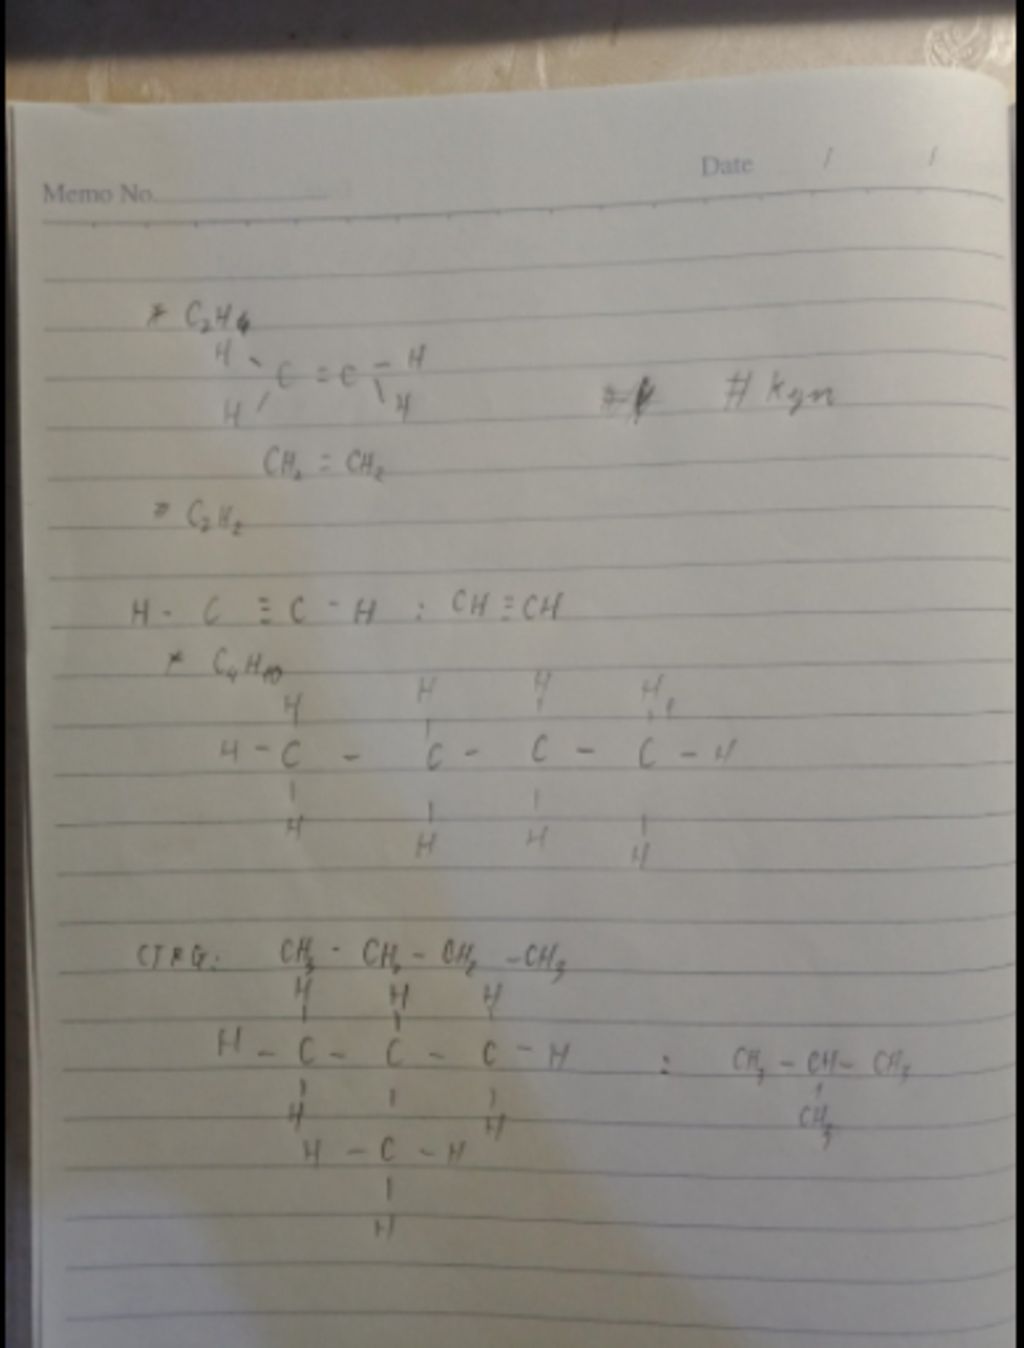 Memo No.
Date / /
* C₂H₄
H H
C = C
H H
# Kyn
CH₂ = CH₂
* C₂H₂
H - C ≡ C - H : CH ≡ CH
* C₄H₁₀
H H H H
H - C - C - C - C - H
H H H H
CTRG: CH₃ - CH₂ - CH₂ - CH₃
H H H
H - C - C - C - H : CH₃ - CH - CH₃
H H CH₃
H - C - H
H